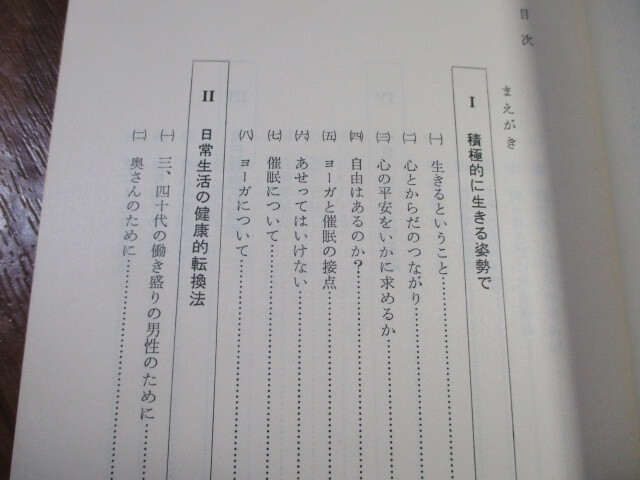 目次
まえがき
I 積極的に生きる姿勢で
㈠ 生きるということ
㈡ 心とからだのつながり
㈢ 心の平安をいかに求めるか
㈣ 自由はあるのか？
㈤ ヨーガと催眠の接点
㈥ あせってはいけない
㈦ 催眠について
㈧ ヨーガについて
II 日常生活の健康的転換法
㈠ 三、四十代の働き盛りの男性のために
㈡ 奥さんのために